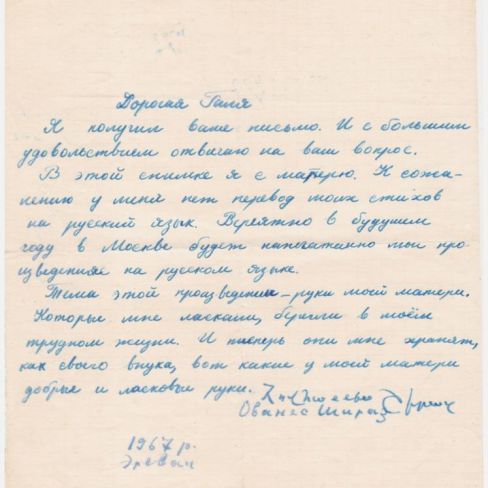 Дорогая Галя
Я получил ваше письмо. И с большим
удовольствием отвечаю на ваш вопрос.
В этой снимке я с матерю. К сожа-
лению у меня нет перевод моих стихов
на русский язык. Вереятно в будушем
году в Москве будет напечатанно мои про
изведенияе на русском языке.
Тема этой произведении – руки моей матери.
Которые мне ласкали, берегли в моём
трудном жизни. И теперь они мне хранят,
как своего внука, вот какие у моей матери
добрые и ласковые руки.
Ованес Шираз
1967 р.
Эреван